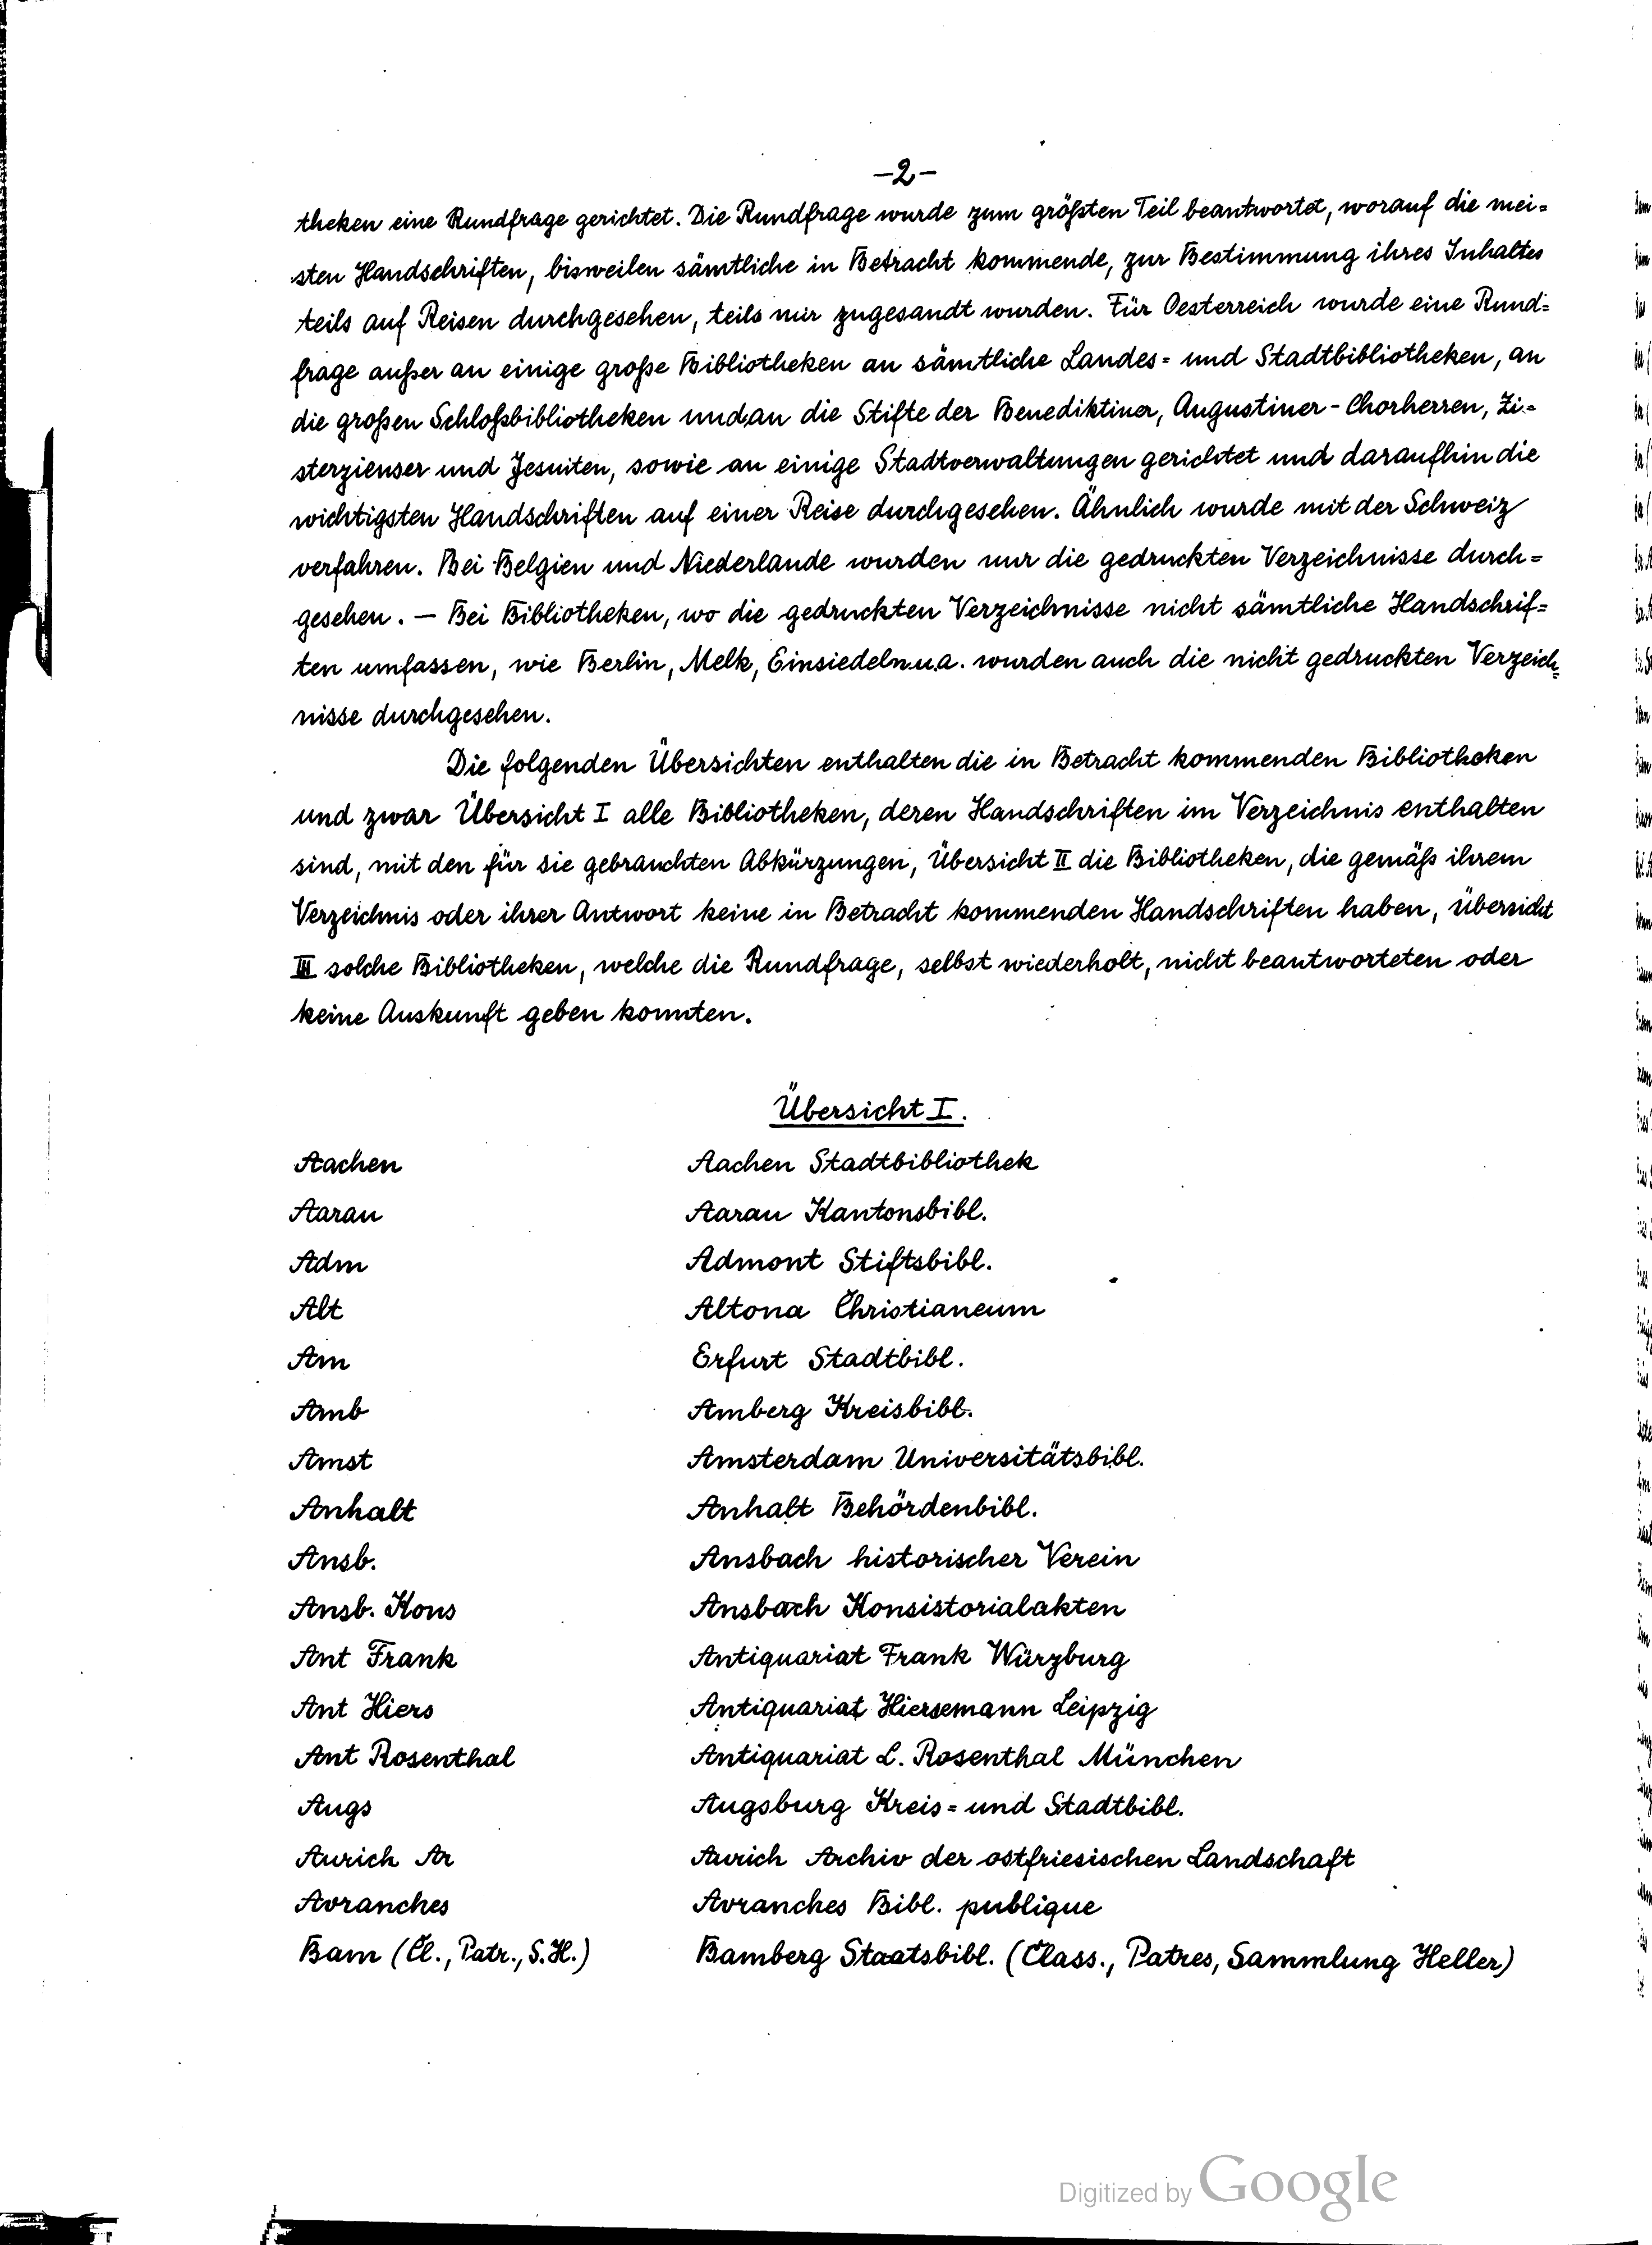 –2–
theken eine Rundfrage gerichtet. Die Rundfrage wurde zum größten Teil beantwortet, worauf die mei=
sten Handschriften, bisweilen sämtliche in Betracht kommende, zur Bestimmung ihres Inhaltes
teils auf Reisen durchgesehen, teils mir zugesandt wurden. Für Oesterreich wurde eine Rund=
frage außer an einige große Bibliotheken an sämtliche Landes= und Stadtbibliotheken, an
die großen Schloßbibliotheken und an die Stifte der Benediktiner, Augustiner-Chorherren, Zi=
sterzienser und Jesuiten, sowie an einige Stadtverwaltungen gerichtet und daraufhin die
wichtigsten Handschriften auf einer Reise durchgesehen. Ähnlich wurde mit der Schweiz
verfahren. Bei Belgien und Niederlande wurden nur die gedruckten Verzeichnisse durch=
gesehen. – Bei Bibliotheken, wo die gedruckten Verzeichnisse nicht sämtliche Handschrif=
ten umfassen, wie Berlin, Melk, Einsiedeln u.a. wurden auch die nicht gedruckten Verzeich=
nisse durchgesehen.
Die folgenden Übersichten enthalten die in Betracht kommenden Bibliotheken
und zwar Übersicht I alle Bibliotheken, deren Handschriften im Verzeichnis enthalten
sind, mit den für sie gebrauchten Abkürzungen, Übersicht II die Bibliotheken, die gemäß ihrem
Verzeichnis oder ihrer Antwort keine in Betracht kommenden Handschriften haben, Übersicht
III solche Bibliotheken, welche die Rundfrage, selbst wiederholt, nicht beantworteten oder
keine Auskunft geben konnten.
Übersicht I.
Aachen Aachen Stadtbibliothek
Aarau Aarau Kantonsbibl.
Adm Admont Stiftsbibl.
Alt Altona Christianeum
Am Erfurt Stadtbibl.
Amb Amberg Kreisbibl.
Amst Amsterdam Universitätsbibl.
Anhalt Anhalt Behördenbibl.
Ansb. Ansbach historischer Verein
Ansb. Kons Ansbach Konsistorialakten
Ant Frank Antiquariat Frank Würzburg
Ant Hiers Antiquariat Hiersemann Leipzig
Ant Rosenthal Antiquariat L. Rosenthal München
Augs Augsburg Kreis= und Stadtbibl.
Aurich Ar Aurich Archiv der ostfriesischen Landschaft
Avranches Avranches Bibl. publique
Bam (Cl., Patr., S.H.) Bamberg Staatsbibl. (Class., Patres, Sammlung Heller)
Digitized by Google